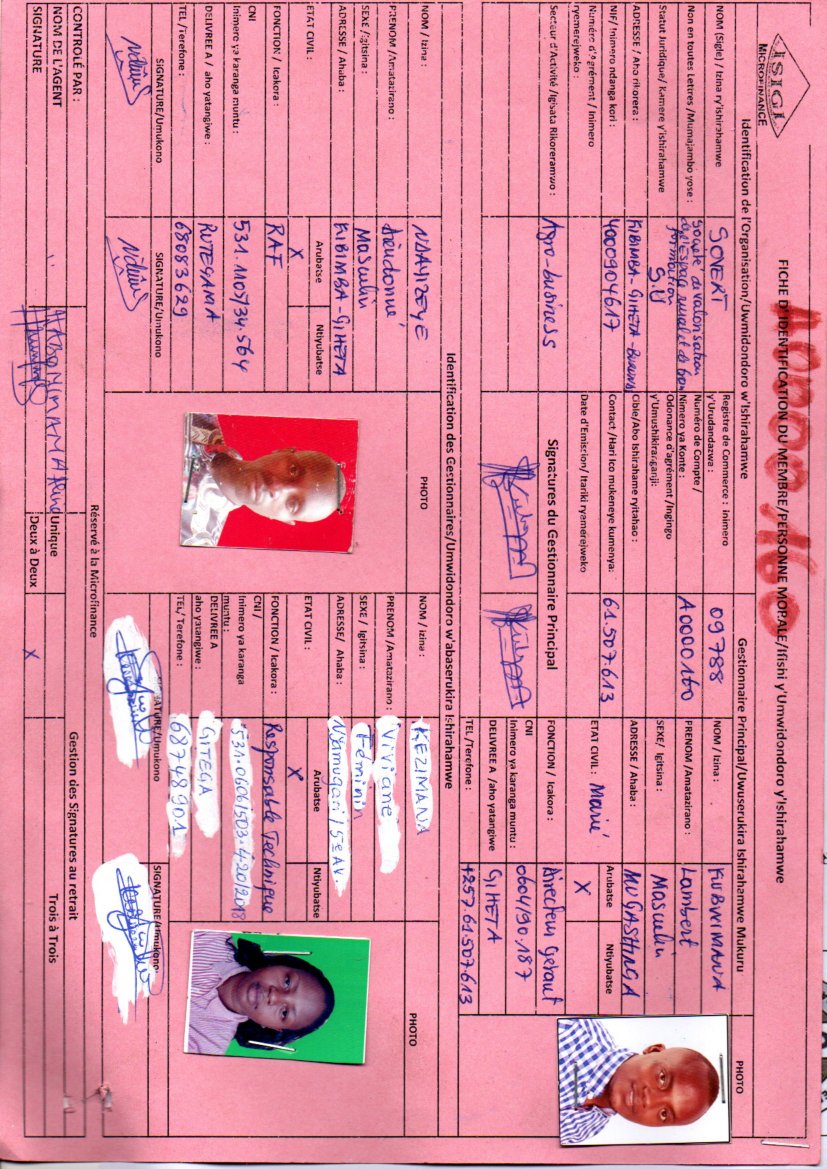 ISIGI
MICROFINANCE
FICHE D'IDENTIFICATION DU MEMBRE/PERSONNE MORALE/Ifishi y'Umwidondoro y'Ishirahamwe
Identification de l'Organisation/Uwmidondoro w'Ishirahamwe
Gestionnaire Principal/Uwuserukira Ishirahamwe Mukuru
PHOTO
NOM (Sigle) / Izina ry'ishirahamwe
SOVERT
Non en toutes Lettres /Mumajambo yose :
Société de valorisation
de l'Espace rural et de
formation
Statut Juridique/ Kamere y'ishirahamwe
S.U
ADRESSE / Aho rikorera :
KIBIMBA-GIHETA-BURUNDI
NIF/ Inimero ndanga kori :
4000904617
Numéro d'Agrément / Inimero
ryemerejweko :
Secteur d'Activité /Igisata Rikoreramwo :
Agro-business
Registre de Commerce : inimero
y'Urudandazwa :
09788
Numéro de Compte /
Nimero ya Konte :
A0000160
Odonance d'agrément /Ingingo
y'Umushikiranganji:
Cible/Abo Ishirahame ryitahao :
Contact /Hari Ico mukeneye kumenya:
61.507.613
Date d'Emission/ Itariki ryemerejweko
Signatures du Gestionnaire Principal
NOM / Izina :
KUBWIMANA
PRENOM /Amatazirano :
Lambert
SEXE/ Igitsina :
Masculin
ADRESSE / Ahaba :
MUGASHINGA
ETAT CIVIL : Marié
Arubatse
Ntiyubatse
X
FONCTION / Icakora :
Directeur Gérant
CNI
Inimero ya karanga muntu :
0604/90.187
DELIVREE A /aho yatangiwe
GIHETA
TEL /Terefone :
+257.61.507.613
Identification des Gestionnaires/Umwidondoro w'abaserukira Ishirahamwe
NOM / Izina :
NDAYIZEYE
PHOTO
PRENOM /Amatazirano :
Dieudonné
SEXE /Igitsina :
Masculin
ADRESSE / Ahaba :
KIBIMBA-GIHETA
ETAT CIVIL :
Arubatse
Ntiyubatse
X
FONCTION / Icakora :
RAF
CNI
Inimero ya karanga muntu :
531.1105/34.564
DELIVREE A / aho yatangiwe :
RUTEGAMA
TEL /Terefone :
68083629
SIGNATURE/Umukono
SIGNATURE/Umukono
NOM / Izina :
KEZIMANA
PHOTO
PRENOM /Amatazirano :
Viviane
SEXE / Igitsina :
Féminin
ADRESSE/ Ahaba :
Nyamugari / 5e AV.
ETAT CIVIL :
Arubatse
Ntiyubatse
X
FONCTION / Icakora :
Responsable Technique
CNI /
Inimero ya karanga
muntu :
DELIVREE A
aho yatangiwe :
GITEGA
TEL/ Terefone :
68748901
SIGNATURE/Umukono
SIGNATURE/Umukono
Réservé à la Microfinance
CONTROLÉ PAR :
Gestion des Signatures au retrait
NOM DE L'AGENT
Unique
Trois à Trois
SIGNATURE
Deux à Deux
X